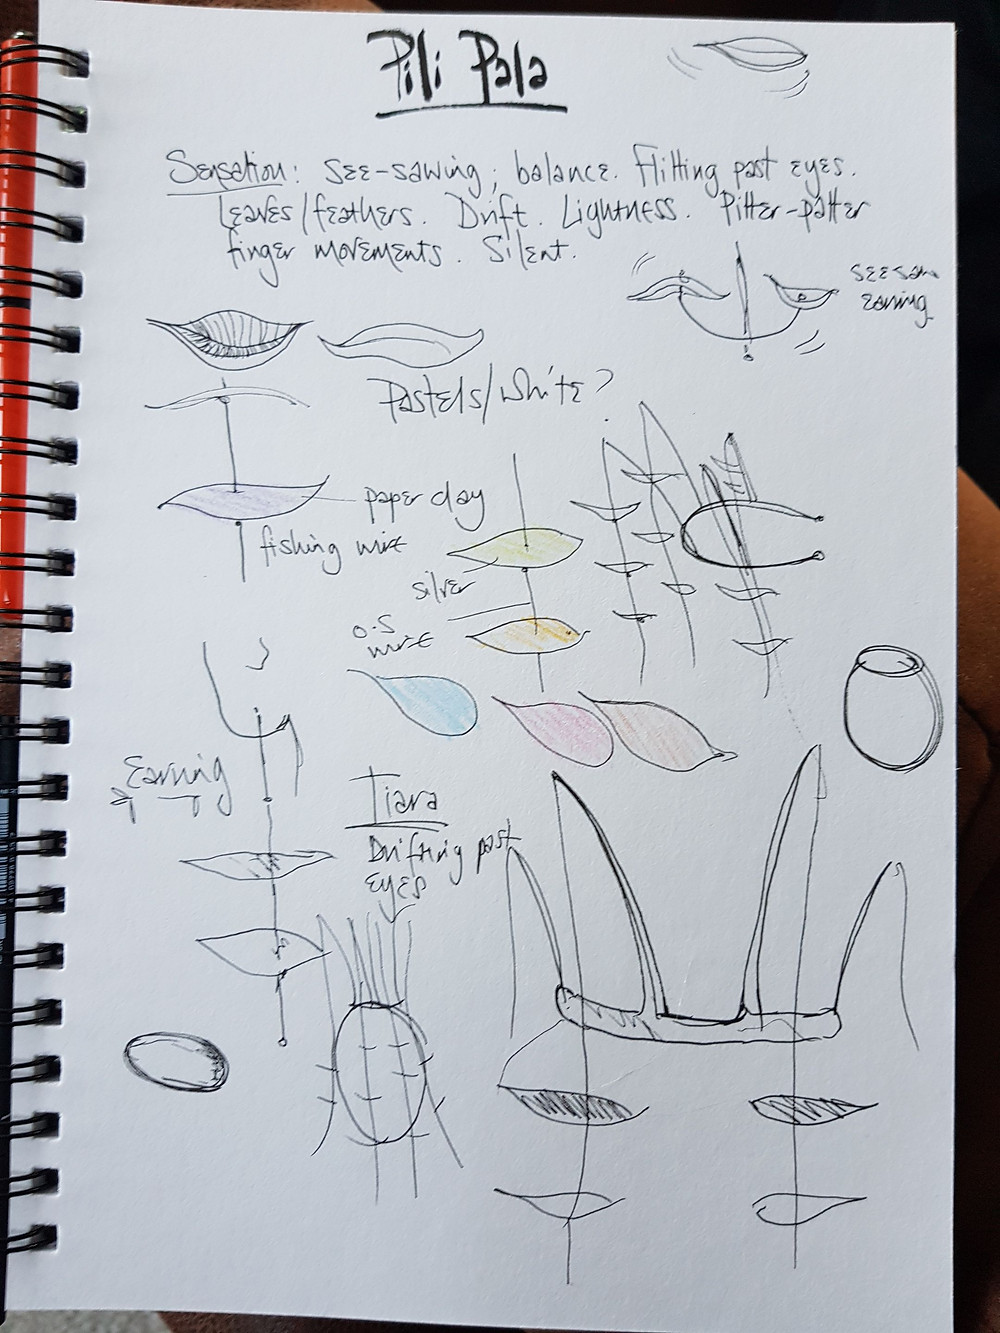 Pili Pala
Sensation: see-sawing; balance. Flitting past eyes.
Leaves/feathers. Drift. Lightness. Pitter-patter
finger movements. Silent.
see saw
earring
Pastels/white?
paper clay
fishing wire
silver
0.5
wire
Earring
Tiara
Drifting past
eyes